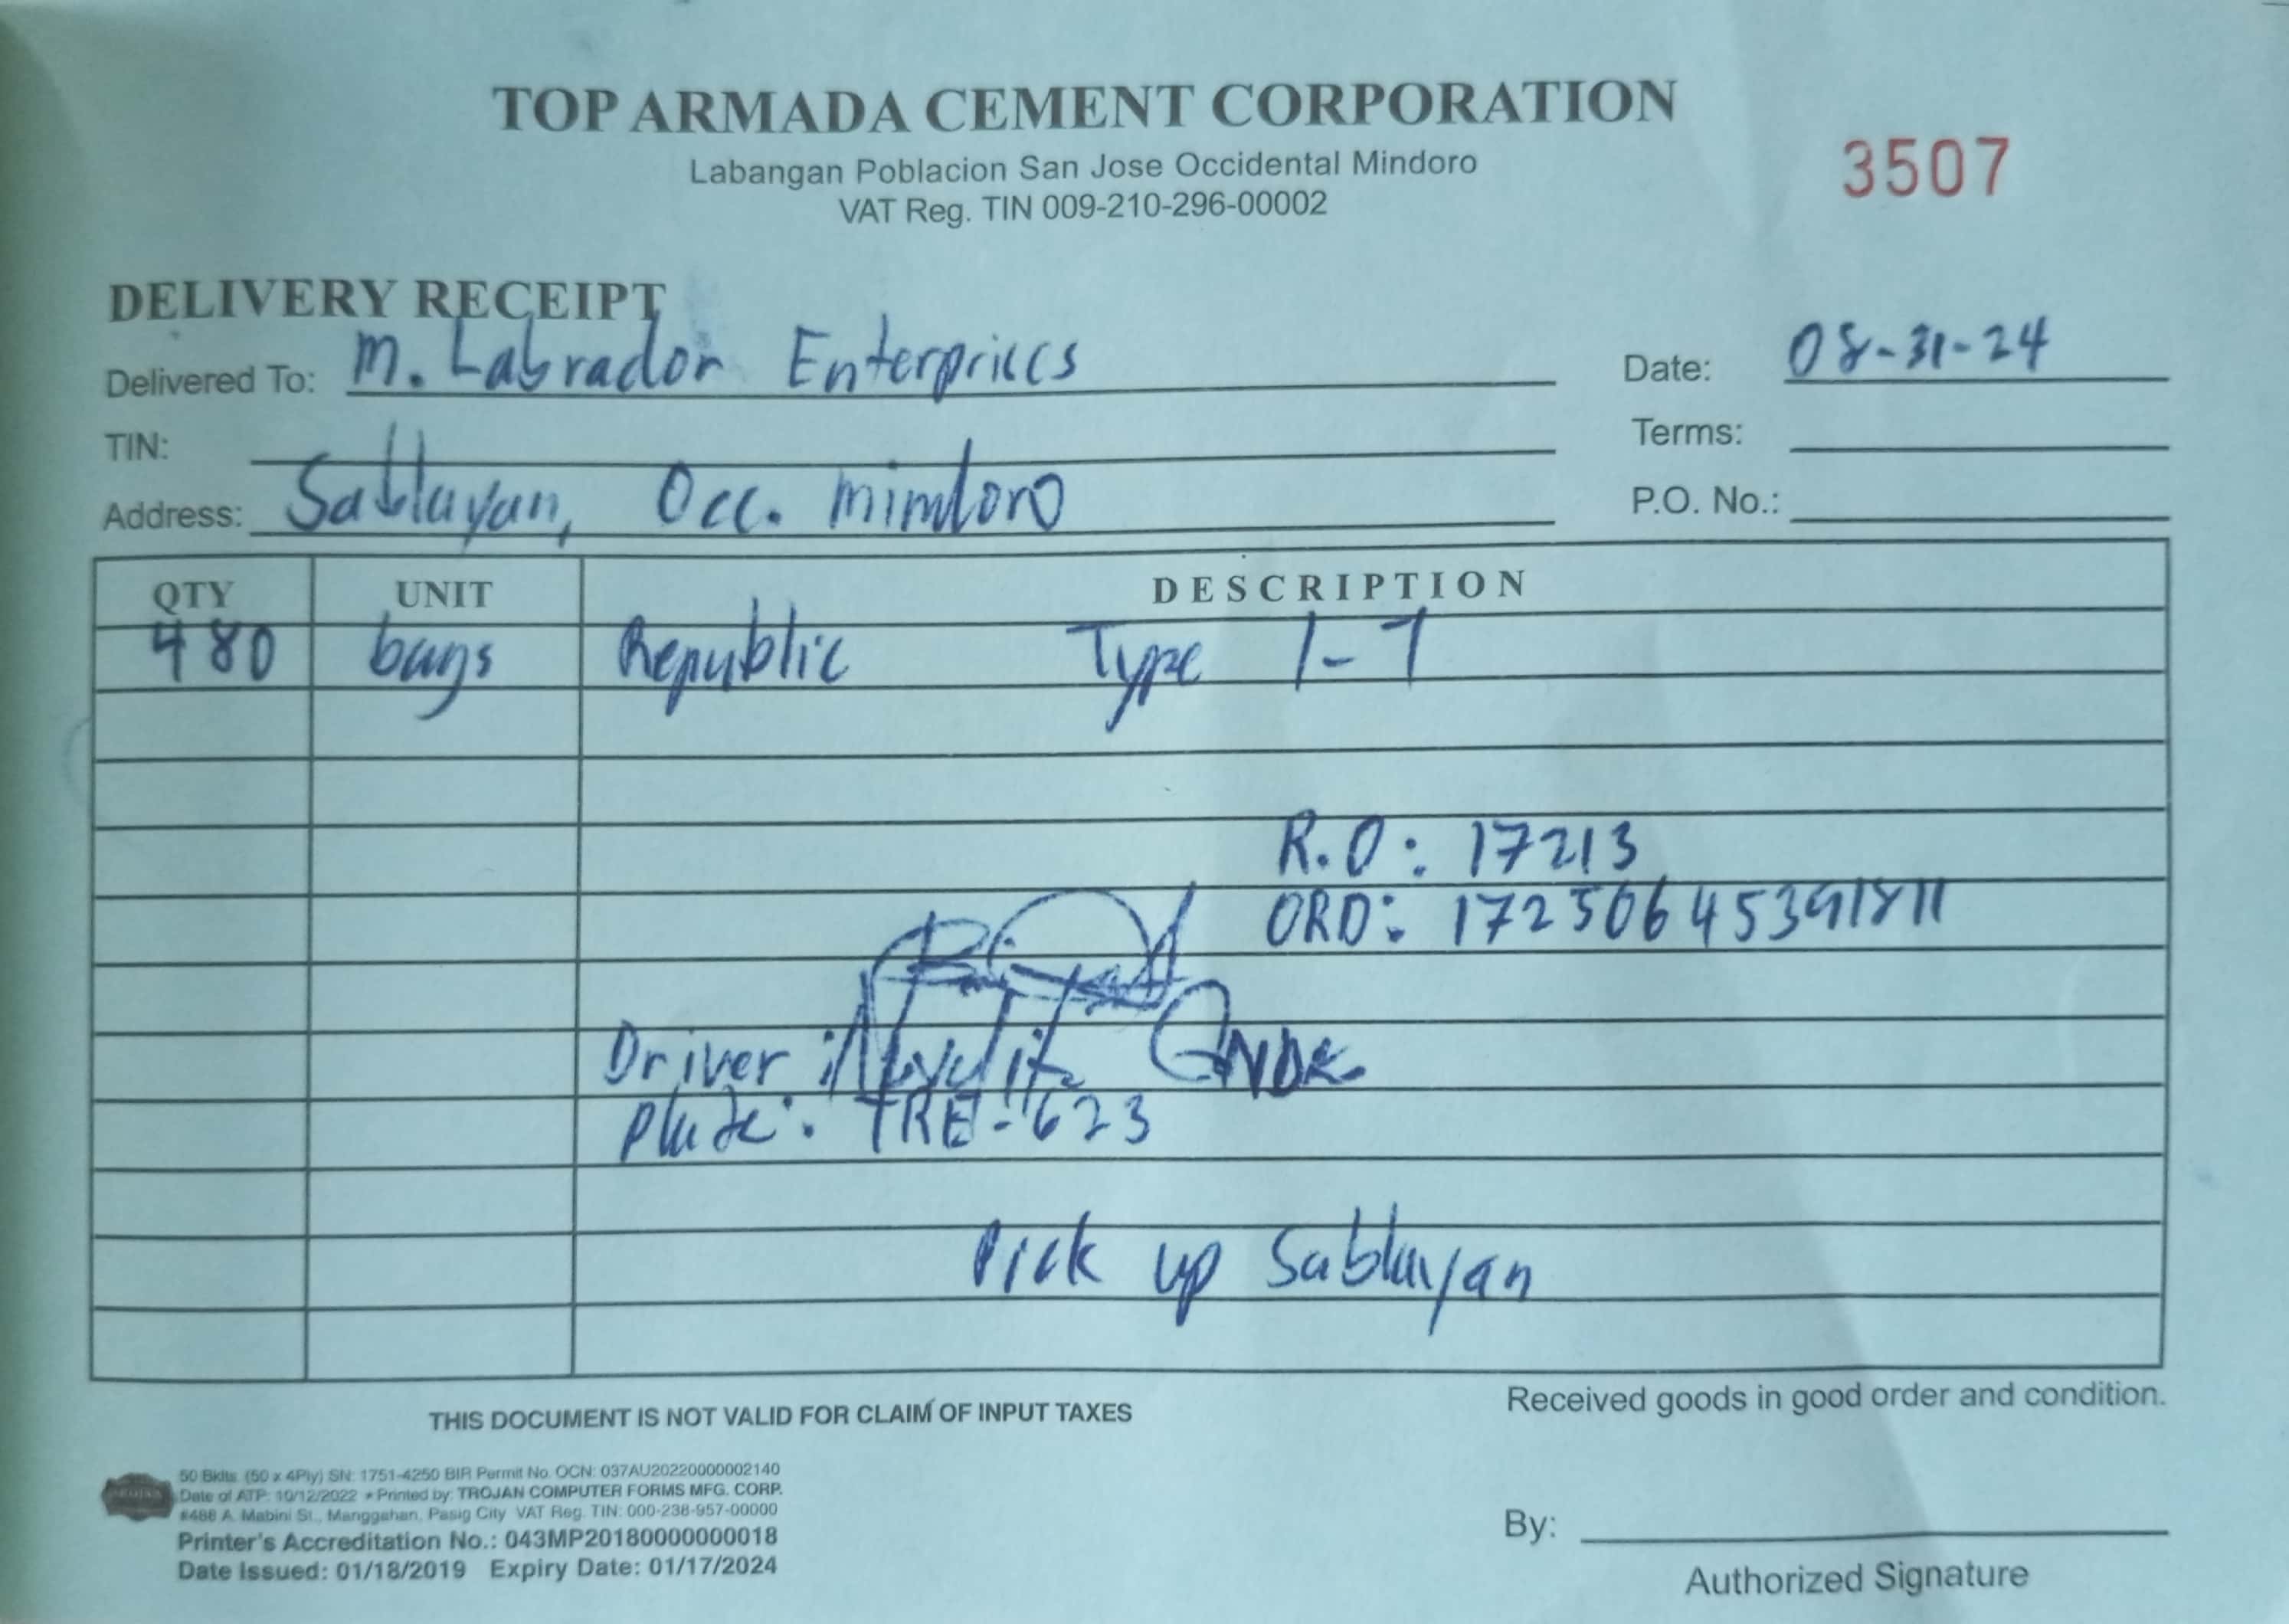 TOP ARMADA CEMENT CORPORATION
Labangan Poblacion San Jose Occidental Mindoro
VAT Reg. TIN 009-210-296-00002
3507
DELIVERY RECEIPT
Delivered To: M. Labrador Enterprices
Date: 08-31-24
TIN:
Terms:
Address: Sablayan, Occ. Mindoro
P.O. No.:
QTY UNIT DESCRIPTION
480 bags Republic Type 1-T
R.O: 17213
ORD: 17250645391811
Driver:
Plate: TRE-623
Pick up Sablayan
THIS DOCUMENT IS NOT VALID FOR CLAIM OF INPUT TAXES
Received goods in good order and condition.
50 Bklts. (50 x 4Ply) SN: 1751-4250 BIR Permit No. OCN: 037AU20220000002140
Date of ATP: 10/12/2022 • Printed by: TROJAN COMPUTER FORMS MFG. CORP.
#488 A. Mabini St., Manggahan, Pasig City VAT Reg. TIN: 000-238-957-00000
Printer's Accreditation No.: 043MP20180000000018
Date Issued: 01/18/2019 Expiry Date: 01/17/2024
By:
Authorized Signature